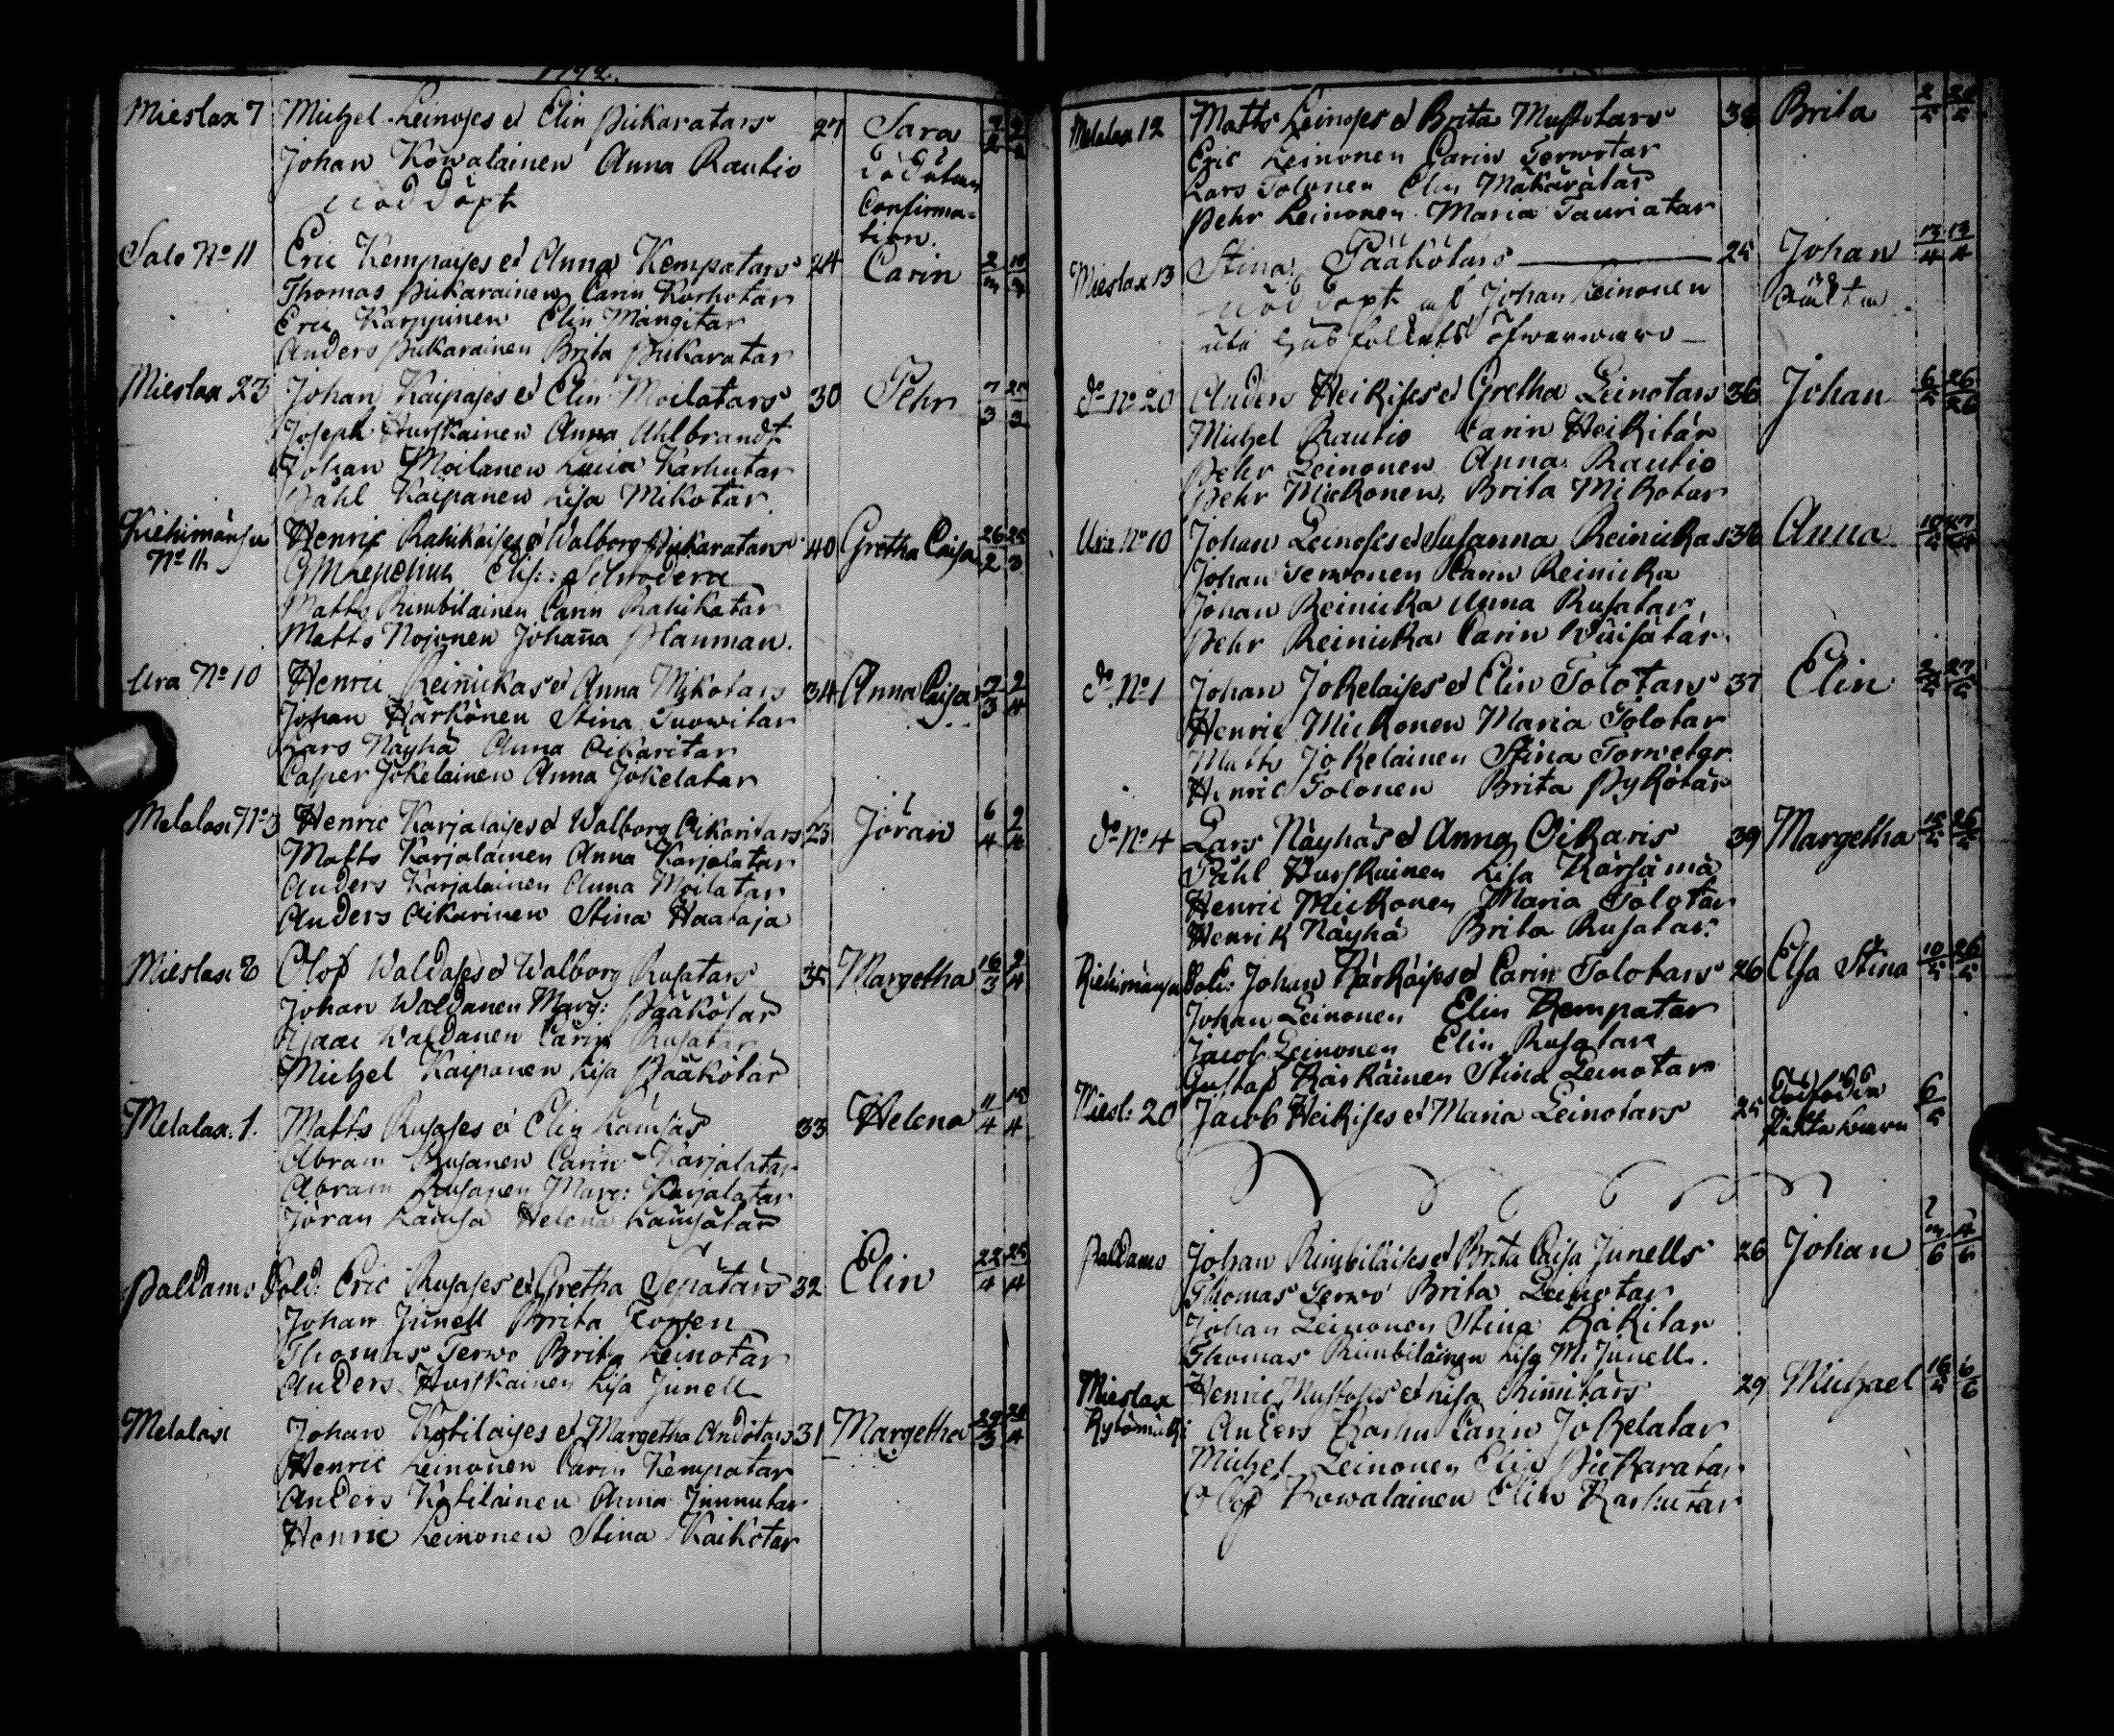 1792.
Mieslax 7 Michel Leinoses et Elin Pikaratars 27 Sara
Johan Kowalainen Anna Rautio död utan
Nöddöpt Confirma=
tion.
Salo No 11 Eric Kempaises et Anna Kempatars 24 Carin
Thomas Pikarainen Carin Korhotar
Eric Karppinen Elin Mangitar
Anders Pikarainen Brita Pikaratar
Mieslax 23 Johan Kaipases et Elin Moilatars 30 Pehr 7/3 25/3
Joseph Hurskainen Anna Ahlbrandt
Johan Moilanen Lucia Karhutar
Påhl Kaipanen Lisa Mikotar
Kiehimänsu Henric Rahikaises et Walborg Pikaratars 40 Gretha Caisa 26/2 25/3
No 11
Matts Rimbilainen Carin Rahikatar
Matts Nojonen Johaña Plauman.
Ura No 10 Henric Reinickas et Anna Mikotars 34 Anna Caisa
Johan Härkönen Stina Suowitar
Lars Näyhä Anna Oikaritar
Casper Jokelainen Anna Jokelatar
Melalax No 3 Henric Karjalaises et Walborg Oikaritars 23 Jöran 6/4 9/4
Matts Karjalainen Anna Karjalatar
Anders Karjalainen Anna Moilatar
Anders Oikarinen Stina Haataja
Mieslax 8 Olof Waldases et Walborg Rusatars 35 Margetha 16/3 9/4
Johan Waldanen Marg: Pääkötar
Isaac Waldanen Carin Rusatar
Michel Kaipanen Lisa Pääkötar
Melalax. 1. Matts Rusases et Elin Lämsäs 33 Helena 11/4 15/4
Abram Rusanen Carin Karjalatar
Abram Rusanen Marg: Karjalatar
Jöran Lämsä Helena Lämsätar
Paldamo Sold: Eric Rusases et Gretha Sepätars 32 Elin 22/4 25/4
Johan Junell Brita
Thomas Terwo Brita Leinotar
Anders Hurskainen Lisa Junell
Melalax Johan Kotilaises et Margetha Andotars 31 Margetha
Henric Leinonen Carin Kempatar
Anders Kotilainen Anna Jnnutar
Henric Leinonen Stina Kaikotar
Melalax 12 Matts Leinoses et Brita Mustotars 38 Brita
Eric Leinonen Carin Terwotar
Lars Tolonen Elin Mäkärätär
Pehr Leinonen Maria Tauriatar
Mieslax 13 Stina Pääkötars 25 Johan 13/4 13/4
Nöddöpt af Johan Leinonen oäkta
uti Gud
do No 20 Anders Heikises et Gretha Leinotars 36 Johan
Michel Rautio Carin Heikitär
Pehr Leinonen Anna Rautio
Pehr Mickonen, Brita Mikotar
Ura No 10 Johan Leinoses et Susanna Reinickas 36 Anna
Johan Terwonen Carin Reinicka
Johan Reinicka Anna Rusatar,
Pehr Reinicka Carin Wäisätär.
do No 1 Johan Jokelaises et Elin Tolotars 37 Elin
Henric Mickonen Maria Tolotar
Matts Jokelainen Stina Torwelar
Henric Tolonen Brita Pykötär
do No 4 Lars Näyhäs et Anna Oikaris 39 Margetha
Påhl Hurskainen Lisa Kärsämä
Henric Mickonen Maria Tolotar
Henrik Näyhä Brita Rusatar.
Kiehimänsu Sold: Johan Kärkäises et Carin Tolotars 26 Elsa Stina
Johan Leinonen Elin Kempatar
Jacob Leinonen Elin Rusatar
Gustaf Karkäinen Stina Leinotar
Miesl: 20 Jacob Heikises et Maria Leinotars 25 Dödfödda
äkta
Paldamo Johan Rimbiläises et Brita Caisa Junells 26 Johan
Thomas Terwo Brita Leinotar
Johan Leinonen Stina Käkitar
Thomas Rimbiläinen Lisa M. Junell.
Mieslax Henric Mustoses et Lisa Riñitars 29 Michael
Kylömäki Anders Karhu Carin Jokelatar
Michel Leinonen Elin Pikaratar
Olof Kowalainen Elin Karhutar